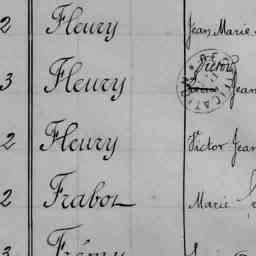 2 Fleury Jean Marie
3 Fleury Victor Jean
2 Fleury Victor Jean
2 Frabot Marie
3 Frémy